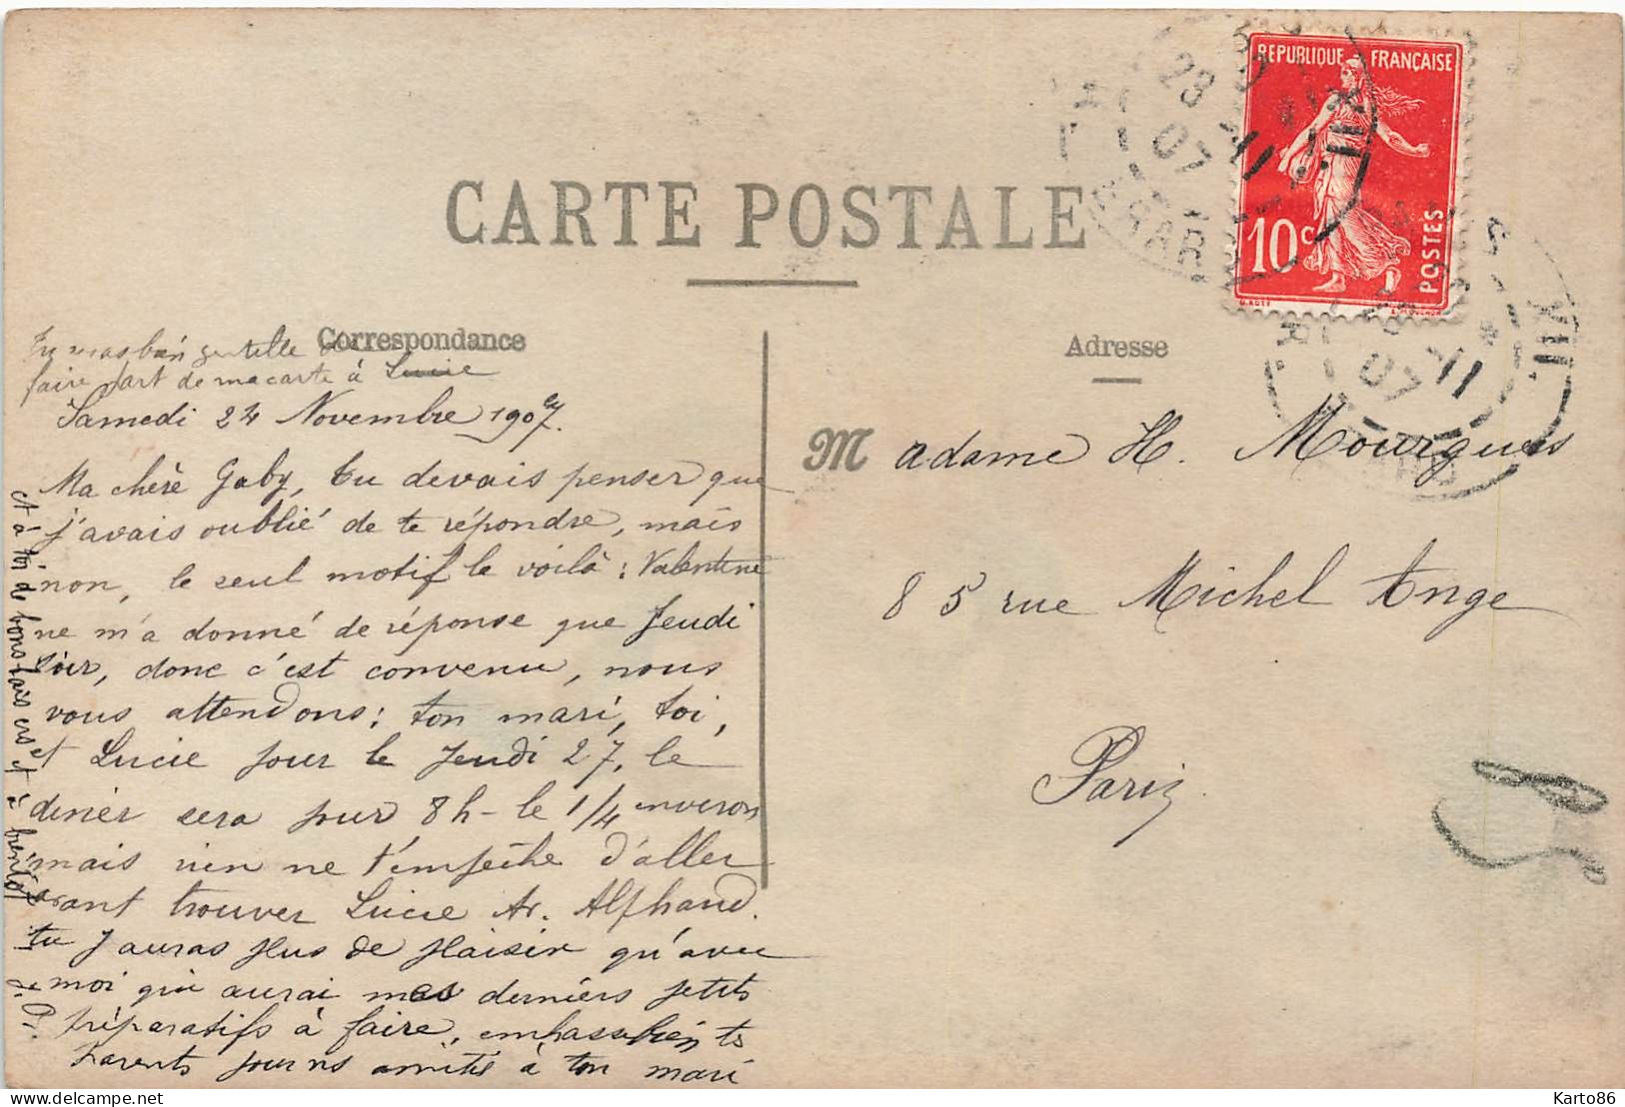 CARTE POSTALE
REPUBLIQUE FRANÇAISE
10c
POSTES
Correspondance
Adresse
Tu seras bien gentille de
faire part de ma carte à Lucie
Samedi 24 Novembre 1907.
Ma chère Gaby, tu devais penser que
j'avais oublié de te répondre, mais
non, le seul motif le voilà : Valentine
ne m'a donné de réponse que Jeudi
soir, donc c'est convenu, nous
vous attendons : ton mari, toi,
et Lucie pour le Jeudi 27, le
diner sera pour 8h - le 1/4 environ
mais rien ne t'empêche d'aller
avant trouver Lucie Av. Alphand.
tu y auras plus de plaisir qu'avec
moi qui aurai mes derniers petits
préparatifs à faire, embasse bien ts
parents pour ns amitié à ton mari
et à toi de bons baisers et à bientôt
Madame H. Mourgues
85 rue Michel Ange
Paris
23 11 07
XII.
Karto86